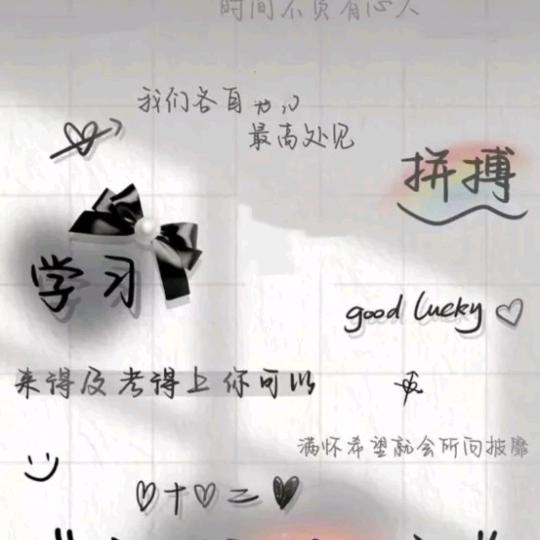 时间不负有心人
我们各自努力
最高处见
拼搏
学习
good lucky ♡
来得及考得上你可以
满怀希望就会所向披靡
♡+♡=♥